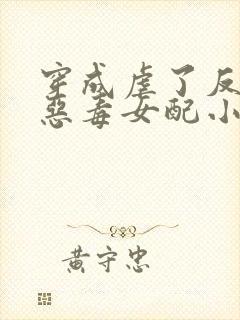 穿成虐了反
惡毒女配小
黃守忠